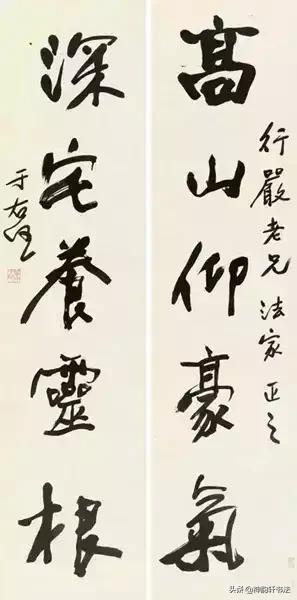 高山仰豪氣
行嚴老兄法家正之
深宅養靈根
于右任
头条@神韵轩书法